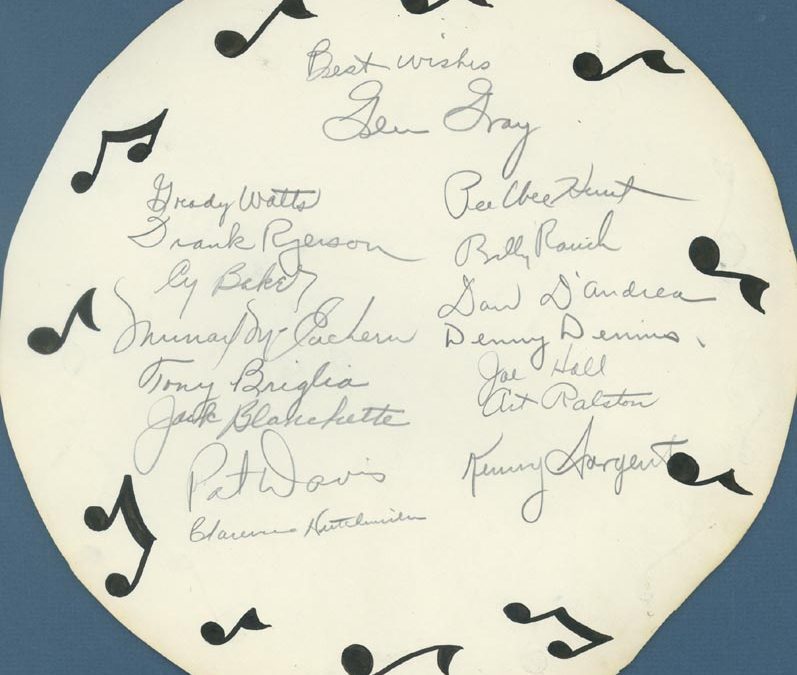 Best wishes
Glen Gray
Grady Watts
Frank Ryerson
Cy Baker
Murray McEachern
Tony Briglia
Jack Blanchette
Pat Davis
Clarence Hutchinrider
Pee Wee Hunt
Billy Rauch
Dan D'Andrea
Denny Dennis.
Joe Hall
Art Ralston
Kenny Sargent